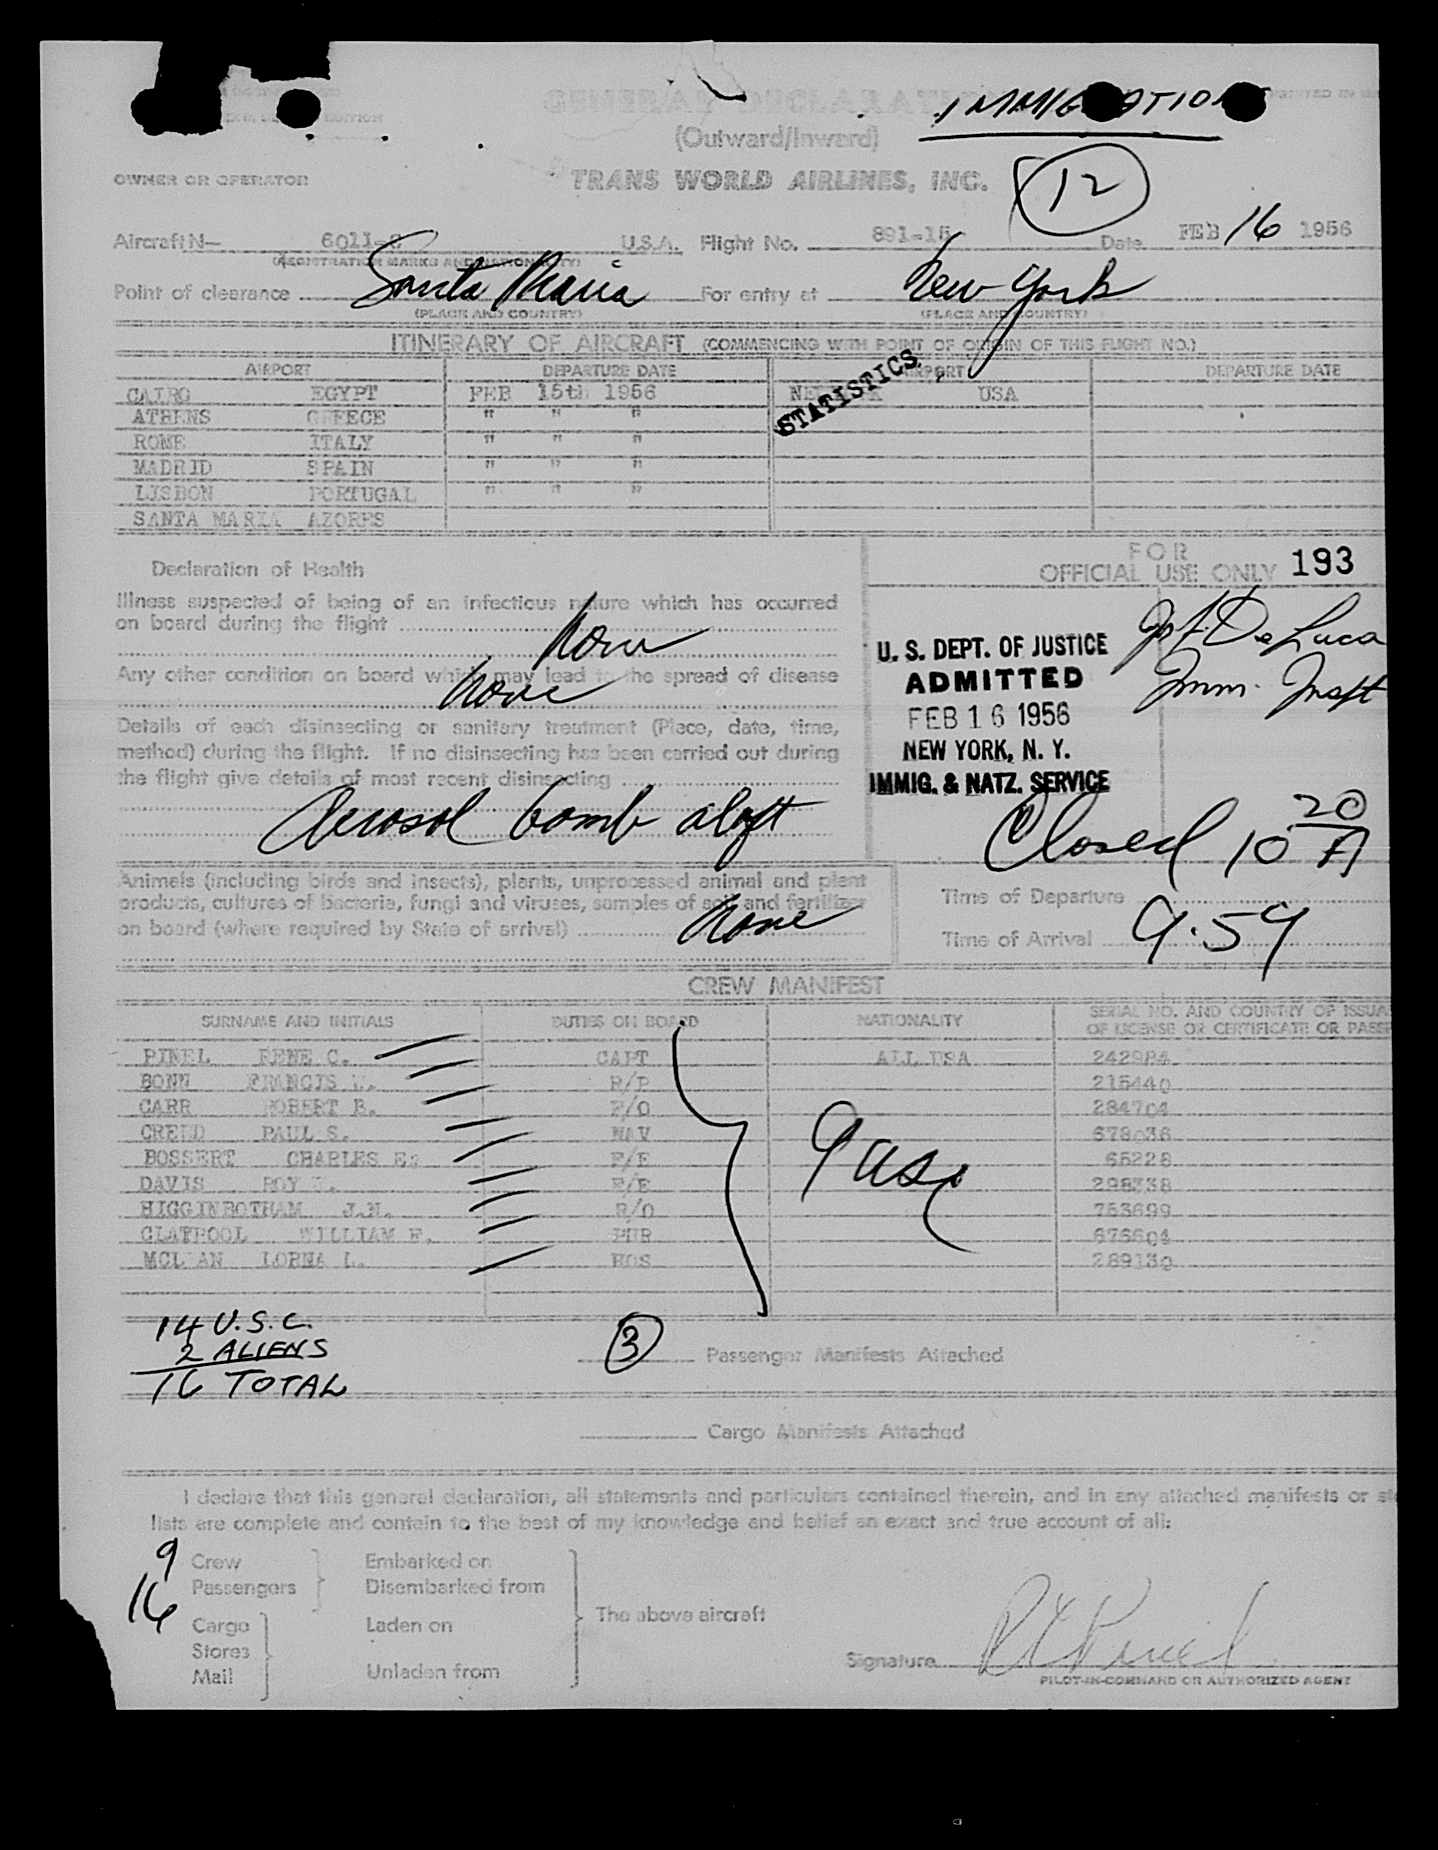 GENERAL DECLARATION
IMMIGRATION
(Outward/Inward)
OWNER OR OPERATOR TRANS WORLD AIRLINES, INC.
12
Aircraft N— 6011-C U.S.A. Flight No. 891-15 Date FEB 16 1956
(REGISTRATION MARKS AND NATIONALITY)
Point of clearance Santa Maria For entry at New York
(PLACE AND COUNTRY) (PLACE AND COUNTRY)
ITINERARY OF AIRCRAFT (COMMENCING WITH POINT OF ORIGIN OF THIS FLIGHT NO.)
AIRPORT DEPARTURE DATE AIRPORT DEPARTURE DATE
STATISTICS
CAIRO EGYPT FEB 15th 1956 NEW YORK USA
ATHENS GREECE " " "
ROME ITALY " " "
MADRID SPAIN " " "
LISBON PORTUGAL " " "
SANTA MARIA AZORES
FOR
OFFICIAL USE ONLY 193
Declaration of Health
Illness suspected of being of an infectious nature which has occurred
on board during the flight
None
Any other condition on board which may lead to the spread of disease
None
Details of each disinsecting or sanitary treatment (Place, date, time,
method) during the flight. If no disinsecting has been carried out during
the flight give details of most recent disinsecting
Aerosol bomb aloft
Jos. F. De Luca
Imm. Inspt
U. S. DEPT. OF JUSTICE
ADMITTED
FEB 16 1956
NEW YORK, N. Y.
IMMIG. & NATZ. SERVICE
Closed 10 20 A
Animals (including birds and insects), plants, unprocessed animal and plant
products, cultures of bacteria, fungi and viruses, samples of soil and fertilizer
on board (where required by State of arrival) None
Time of Departure
Time of Arrival 9.59
CREW MANIFEST
SURNAME AND INITIALS DUTIES ON BOARD NATIONALITY SERIAL NO. AND COUNTRY OF ISSUA
OF LICENSE OR CERTIFICATE OR PASSP
PINEL RENE C. CAPT ALL USA 242984
BONN FRANCIS 215440
CARR ROBERT B. F/O 284704
CREED PAUL S. NAV 678036
BOSSERT CHARLES E. F/E 65228
DAVIS ROY F/E 298338
HIGGINBOTHAM J.N. R/O 753699
CLATPOOL WILLIAM F. PUR 676604
MCLEAN LORNA L. HOS 289130
9 USC
14 U.S.C.
2 ALIENS
16 TOTAL
3 Passenger Manifests Attached
Cargo Manifests Attached
I declare that this general declaration, all statements and particulars contained therein, and in any attached manifests or st
lists are complete and contain to the best of my knowledge and belief an exact and true account of all:
9 Crew Embarked on
16 Passengers Disembarked from
Cargo Laden on The above aircraft
Stores
Mail Unladen from
Signature
PILOT-IN-COMMAND OR AUTHORIZED AGENT